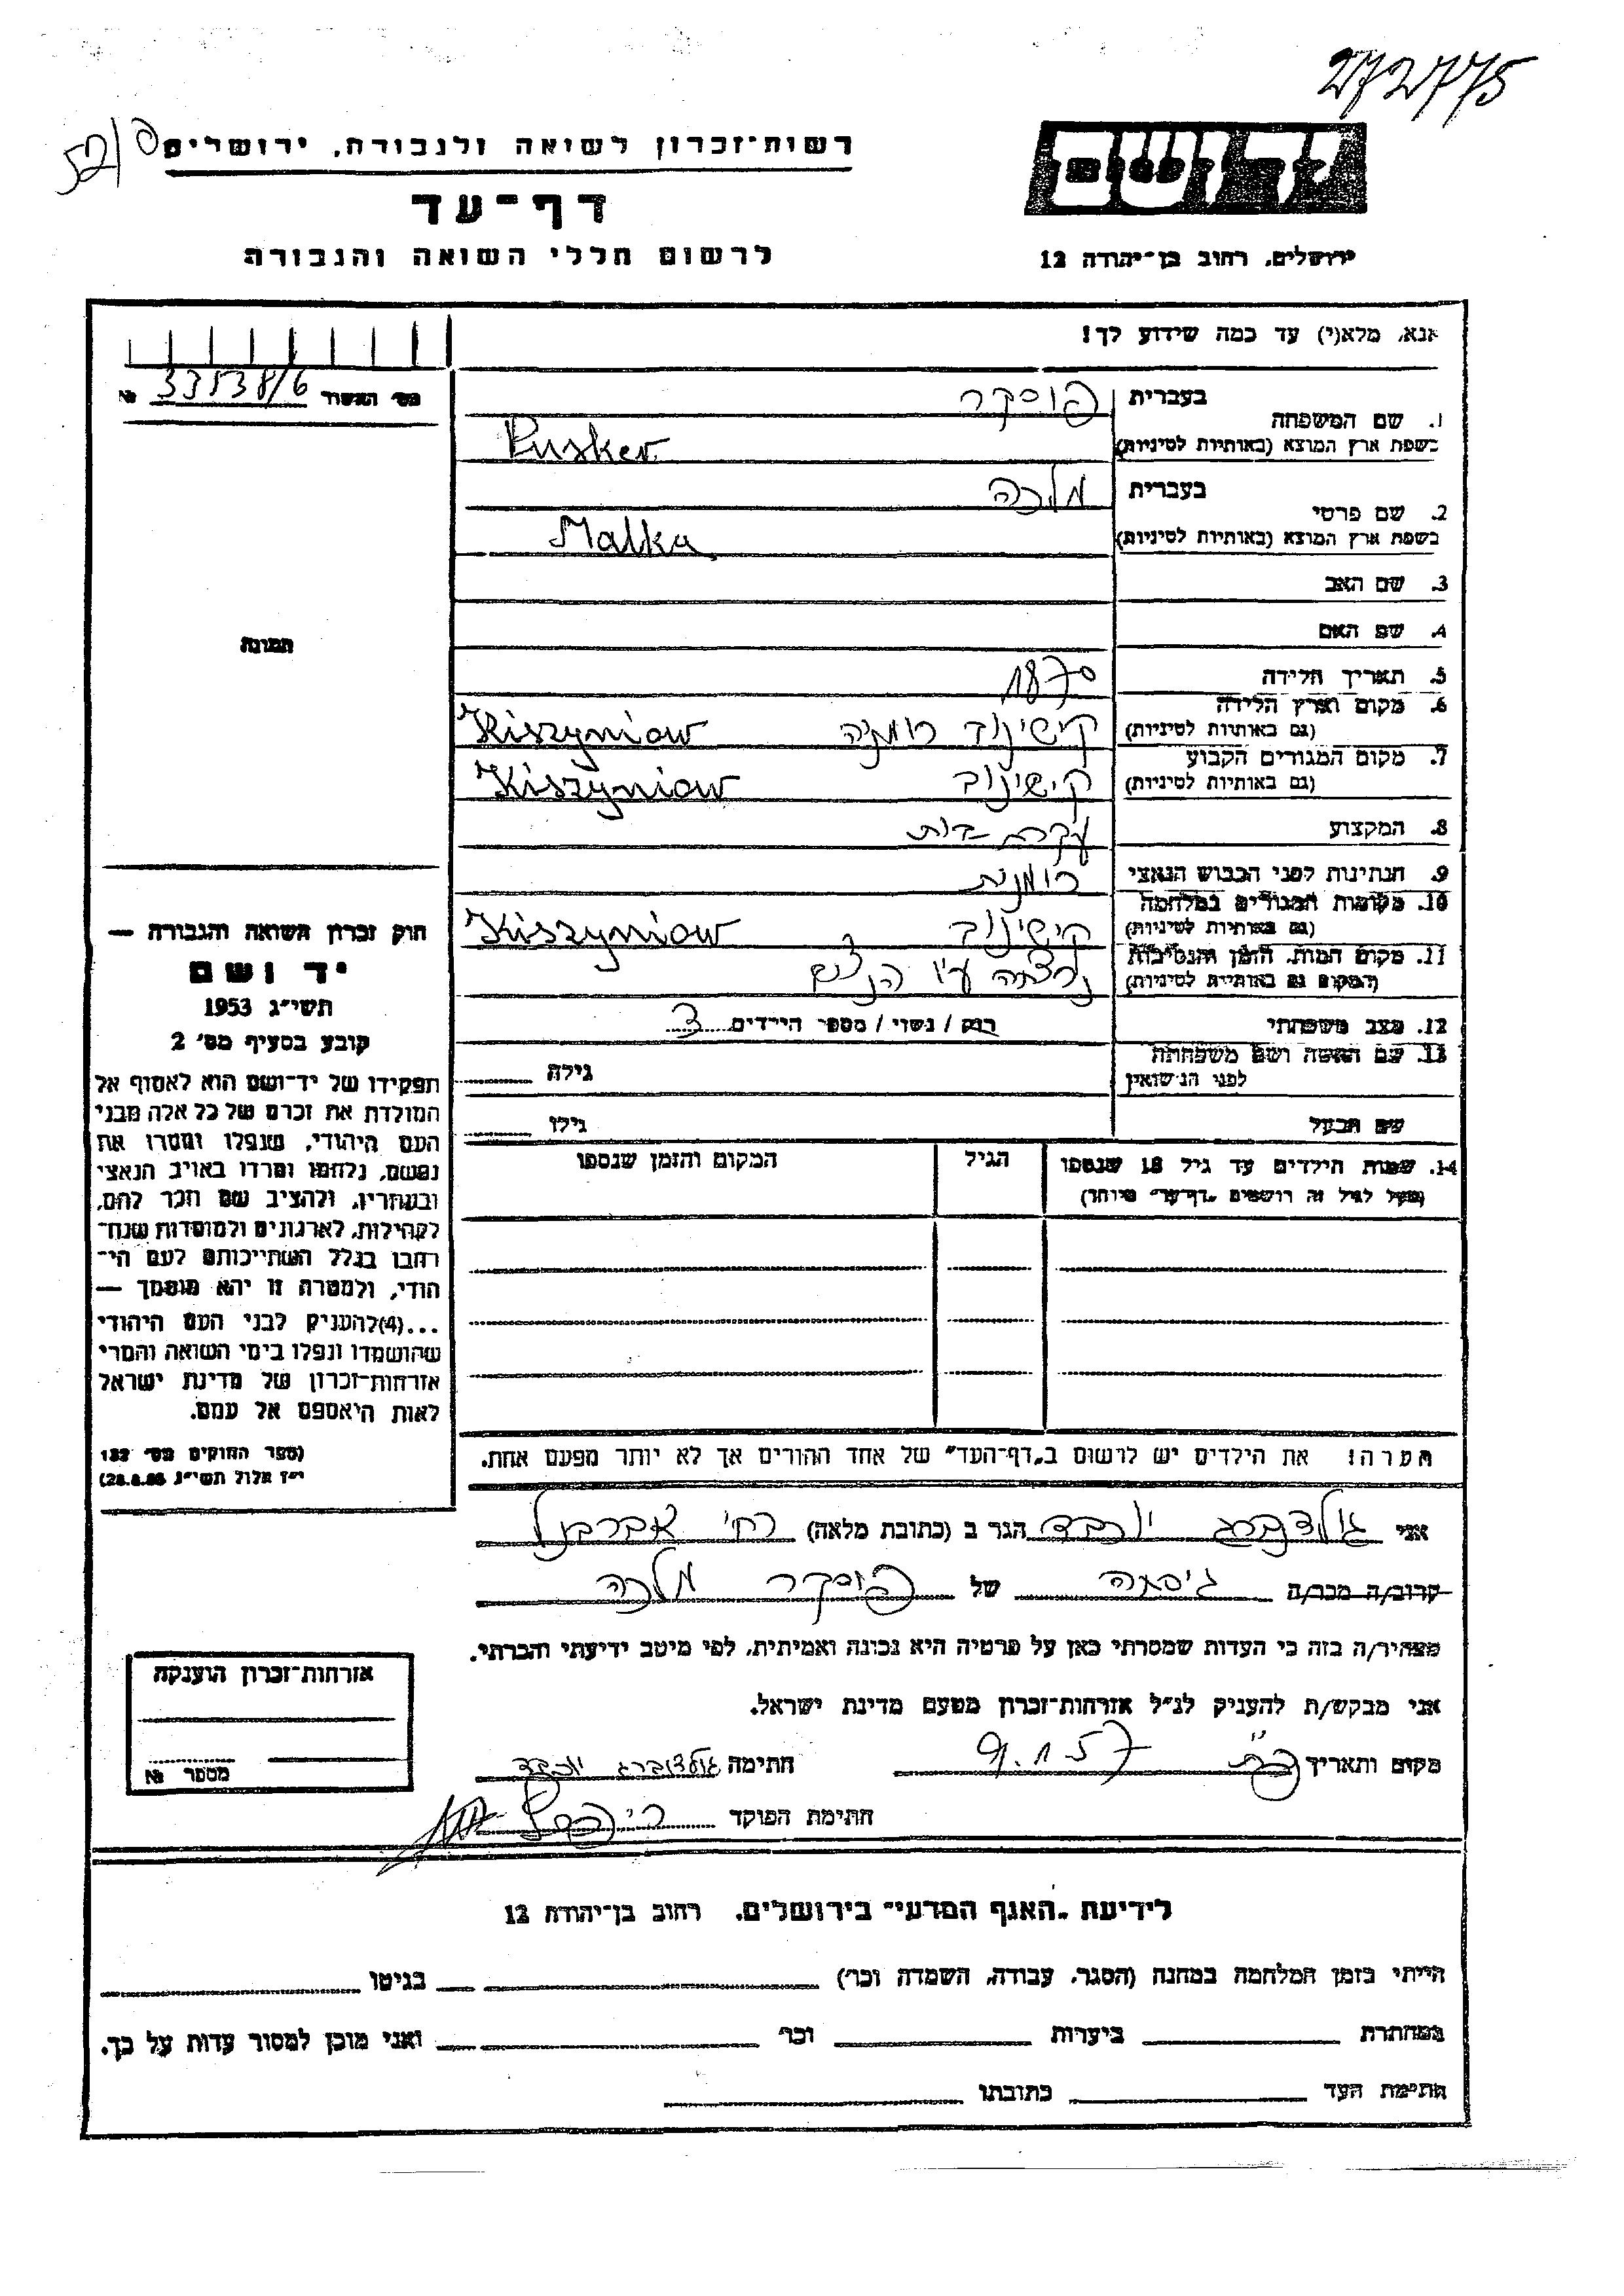 272775
52/פ
רשות־זכרון לשואה ולגבורה, ירושלים
דף־עד
לרשום חללי השואה והגבורה
יד ושם
ירושלים, רחוב בן־יהודה 12
אנא, מלא(י) עד כמה שידוע לך!
מס׳ האשור 33538/6 №
1. שם המשפחה בעברית פוסקר
בשפת ארץ המוצא (באותיות לטיניות) Pusker
2. שם פרטי בעברית מלכה
בשפת ארץ המוצא (באותיות לטיניות) Malka
3. שם האב
4. שם האם
תמונה
5. תאריך הלידה 1870
6. מקום וארץ הלידה
(גם באותיות לטיניות) קישינוב רומניה Kiszyniow
7. מקום המגורים הקבוע
(גם באותיות לטיניות) קישינוב Kiszyniow
8. המקצוע עקרת בית
9. הנתינות לפני הכבוש הנאצי רומנית
10. מקומות המגורים במלחמה
(גם באותיות לטיניות) קישינוב Kiszyniow
11. מקום המות, הזמן והנסיבות
(המקום גם באותיות לטיניות) נרצחה ע״י הנצים
12. מצב משפחתי רווק / נשוי / מספר הילדים 3
13. שם האשה ושם משפחתה
לפני הנישואין גילה
שם הבעל גילו
14. שמות הילדים עד גיל 18 שנספו הגיל המקום והזמן שנספו
(מעל לגיל זה רושמים „דף־עד״ מיוחד)
חוק זכרון השואה והגבורה —
יד ושם
תשי״ג 1953
קובע בסעיף מס׳ 2
תפקידו של יד־ושם הוא לאסוף אל
המולדת את זכרם של כל אלה מבני
העם היהודי, שנפלו ומסרו את
נפשם, נלחמו ומרדו באויב הנאצי
ובעוזריו, ולהציב שם וזכר להם,
לקהילות, לארגונים ולמוסדות שנח־
רבו בגלל השתייכותם לעם הי־
הודי, ולמטרה זו יהא מוסמך —
...(4)להעניק לבני העם היהודי
שהושמדו ונפלו בימי השואה והמרי
אזרחות־זכרון של מדינת ישראל
לאות היאספם אל עמם.
(ספר החוקים מס׳ 132
י״ז אלול תשי״ג
הערה! את הילדים יש לרשום ב„דף־העד״ של אחד ההורים אך לא יותר מפעם אחת.
אני גולדברג יוכבד הגר ב (כתובת מלאה) רח׳ אברבנל
קרוב/ה מכר/ה גיסתה של פוסקר מלכה
מצהיר/ה בזה כי העדות שמסרתי כאן על פרטיה היא נכונה ואמיתית, לפי מיטב ידיעתי והכרתי.
אני מבקש/ת להעניק לנ״ל אזרחות־זכרון מטעם מדינת ישראל.
מקום ותאריך 9.1.57 חתימה גולדברג יוכבד
חתימת הפוקד
אזרחות־זכרון הוענקה
מספר №
לידיעת „האגף המדעי״ בירושלים, רחוב בן־יהודה 12
הייתי בזמן המלחמה במחנה (הסגר, עבודה, השמדה וכו׳) בגיטו
במחתרת ביערות וכו׳ ואני מוכן למסור עדות על כך.
חתימת העד כתובתו